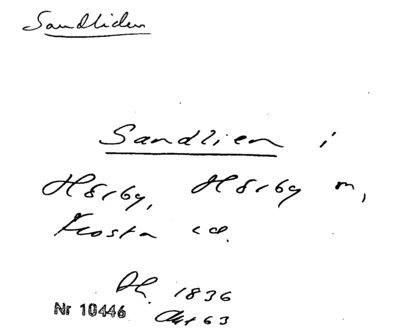 Sandliden
Sandlien i
Hörby, Hörby sn,
Frosta hd.
Dh. 1836
Akt 63
Nr 10446